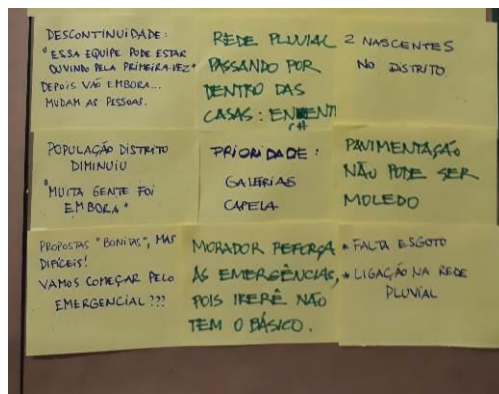 DESCONTINUIDADE:
"ESSA EQUIPE PODE ESTAR
OUVINDO PELA PRIMEIRA VEZ"
DEPOIS VÃO EMBORA...
MUDAM AS PESSOAS.
REDE PLUVIAL
PASSANDO POR
DENTRO DAS
CASAS: ENCHENTE
2 NASCENTES
NO DISTRITO
POPULAÇÃO DISTRITO
DIMINUIU
"MUITA GENTE FOI
EMBORA"
PRIORIDADE:
GALERIAS
CAPELA
PAVIMENTAÇÃO
NÃO PODE SER
MOLEDO
PROPOSTAS "BONITAS", MAS
DIFÍCEIS!
VAMOS COMEÇAR PELO
EMERGENCIAL???
MORADOR REFORÇA
AS EMERGÊNCIAS,
POIS IRERÊ NÃO
TEM O BÁSICO.
* FALTA ESGOTO
* LIGAÇÃO NA REDE
PLUVIAL